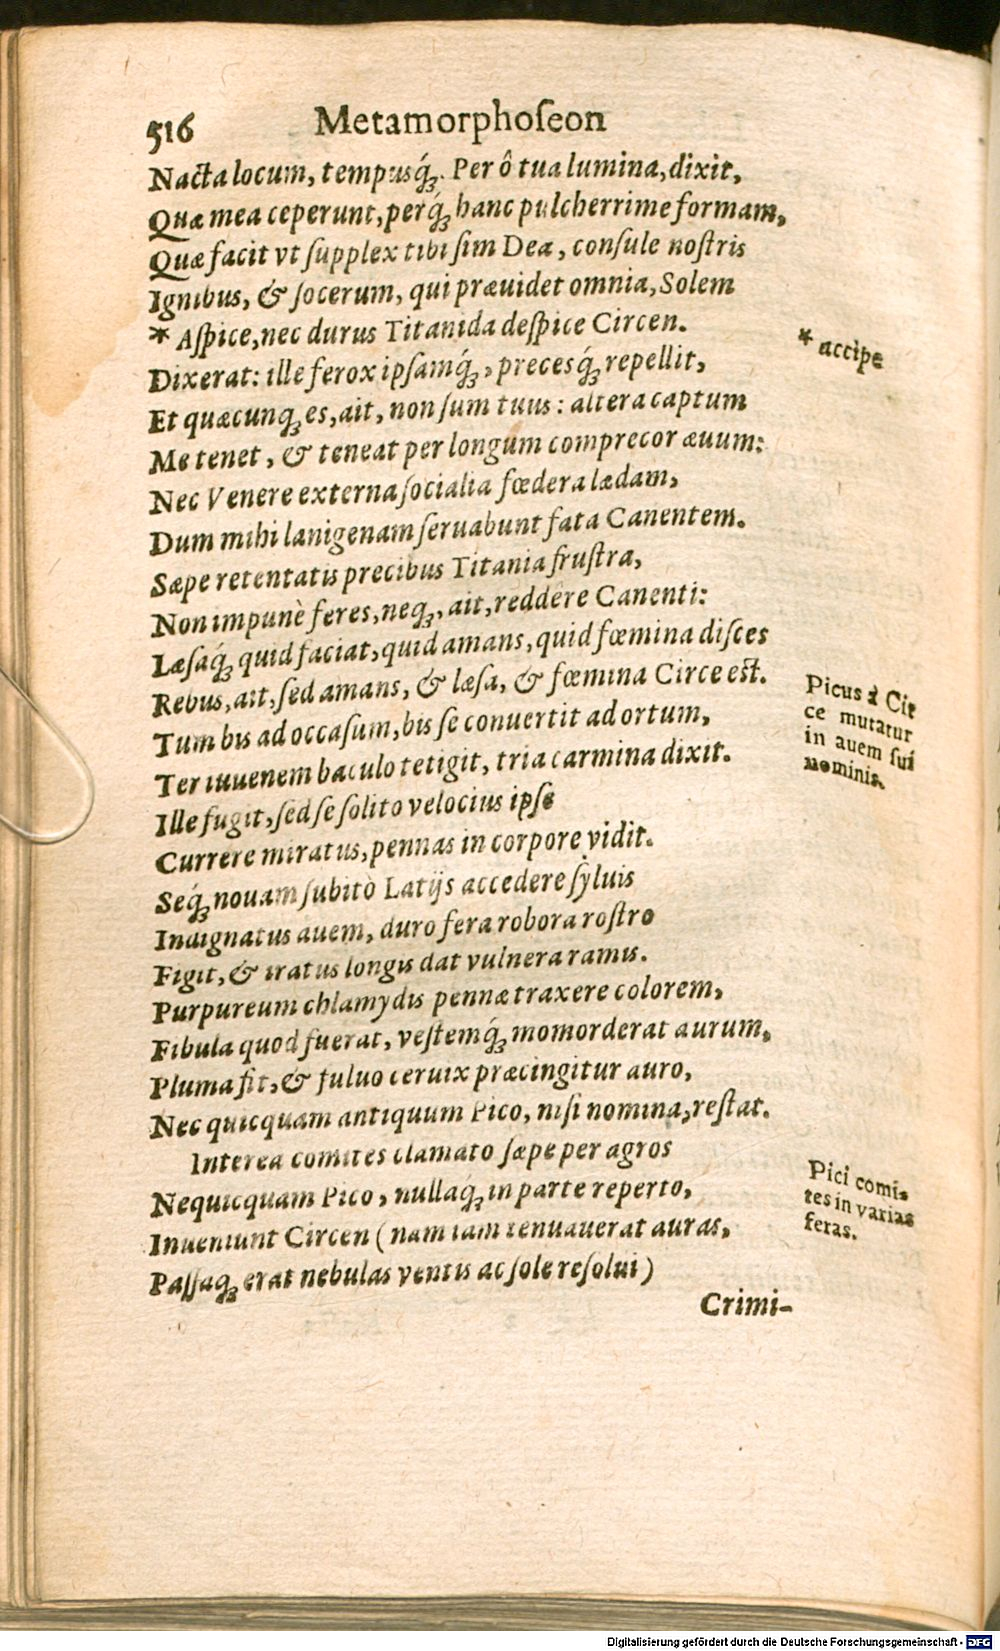 516 Metamorphoſeon
Nacta locum, tempusq́;. Per ô tua lumina, dixit,
Quæ mea ceperunt, perq́; hanc pulcherrime formam,
Quæ facit vt ſupplex tibi ſim Dea, conſule noſtris
Ignibus, & ſocerum, qui præuidet omnia, Solem
* Aſpice, nec durus Titanida deſpice Circen.
* accipe
Dixerat: ille ferox ipſamq́;, precesq́; repellit,
Et quæcunq; es, ait, non ſum tuus: altera captum
Me tenet, & teneat per longum comprecor æuum:
Nec Venere externa ſocialia fœdera lædam,
Dum mihi Ianigenam ſeruabunt fata Canentem.
Sæpe retentatis precibus Titania fruſtra,
Non impunè feres, neq;, ait, reddêre Canenti:
Læſaq́; quid faciat, quid amans, quid fœmina diſces
Rebus, ait, ſed amans, & læſa, & fœmina Circe eſt.
Picus à Cir
ce mutatur
in auem ſui
nominis.
Tum bis ad occaſum, bis ſe conuertit ad ortum,
Ter iuuenem baculo tetigit, tria carmina dixit.
Ille fugit, ſed ſe ſolito velocius ipſe
Currere miratus, pennas in corpore vidit.
Seq́; nouam ſubitò Latijs accedere ſyluis
Indignatus auem, duro fera robora roſtro
Figit, & iratus longis dat vulnera ramis.
Purpureum chlamydis pennæ traxere colorem,
Fibula quod fuerat, veſtemq́; momorderat aurum,
Pluma fit, & fuluo ceruix præcingitur auro,
Nec quicquam antiquum Pico, niſi nomina, reſtat.
Interea comites clamato ſæpe per agros
Nequicquam Pico, nullaq́; in parte reperto,
Pici comi-
tes in varias
feras.
Inueniunt Circen (nam iam tenuauerat auras,
Paſſaq; erat nebulas ventis ac ſole reſolui)
Crimi-
Digitalisierung gefördert durch die Deutsche Forschungsgemeinschaft - DFG